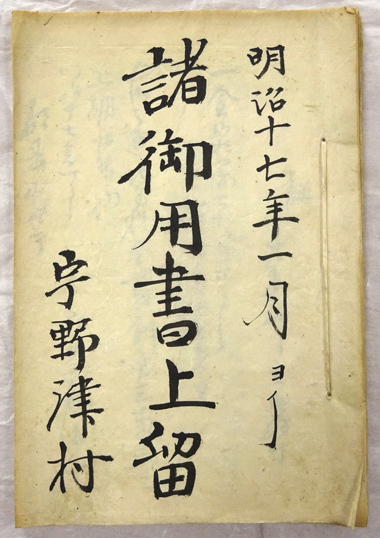 明治十七年一月ヨリ
諸御用書上留
宇野津村